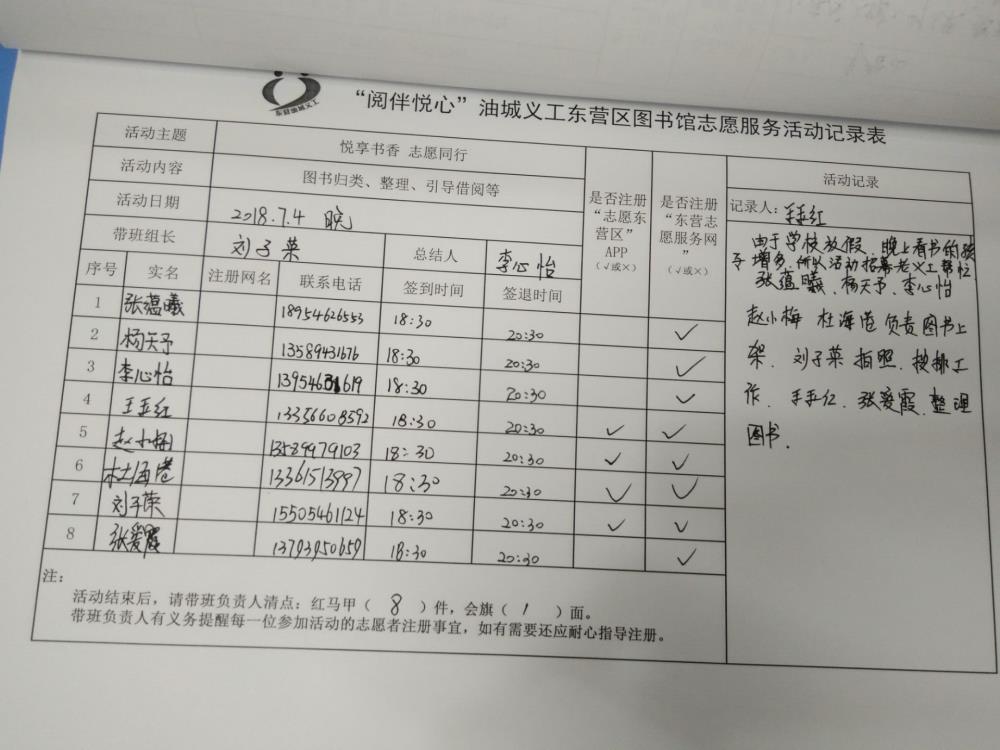 东营油城义工
“阅伴悦心”油城义工东营区图书馆志愿服务活动记录表
活动主题 悦享书香 志愿同行
活动内容 图书归类、整理、引导借阅等
活动日期 2018.7.4 晚
带班组长 刘子荣 总结人 李心怡
是否注册“志愿东营区”APP（√或×）
是否注册“东营志愿服务网”（√或×）
序号 实名 注册网名 联系电话 签到时间 签退时间
1 张蕴曦 18954626553 18:30 20:30 ✓
2 杨天予 13589431676 18:30 20:30 ✓
3 李心怡 18:30 20:30 ✓
4 王玉红 13356608592 18:30 20:30 ✓ ✓
5 赵小梅 13589979103 18:30 20:30 ✓ ✓
6 杜海港 13361513997 18:30 20:30 ✓ ✓
7 刘子荣 15505461124 18:30 20:30 ✓ ✓
8 张爱霞 13793950659 18:30 20:30 ✓
注：
活动结束后，请带班负责人清点：红马甲（ 8 ）件，会旗（ 1 ）面。
带班负责人有义务提醒每一位参加活动的志愿者注册事宜，如有需要还应耐心指导注册。
活动记录
记录人：王玉红
由于学校放假、晚上看书的孩
子增多，所以活动招募老义工帮忙
张蕴曦、杨天予、李心怡
赵小梅 杜海港 负责图书上
架、刘子荣 拍照、按排工
作、王玉红、张爱霞、整理
图书.